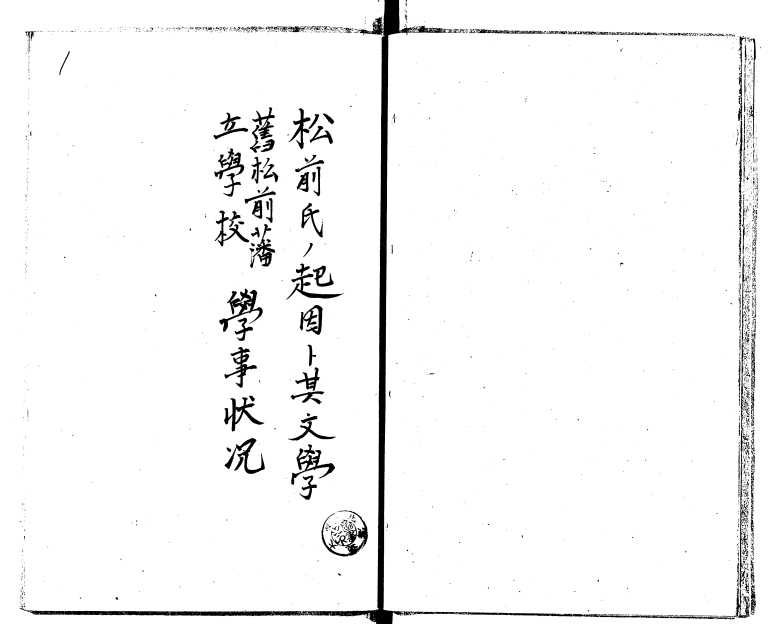 松前氏ノ起因ト其文學
舊松前藩
立學校
學事状況